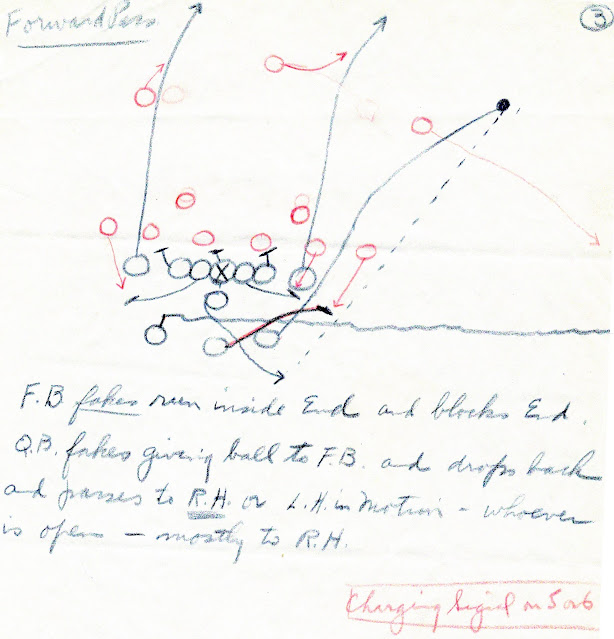 Forward Pass
3
F.B fakes run inside End and blocks End.
Q.B. fakes giving ball to F.B. and drops back
and passes to R.H. or L.H. in Motion - whoever
is open - mostly to R.H.
Charging Signal on 5 or 6